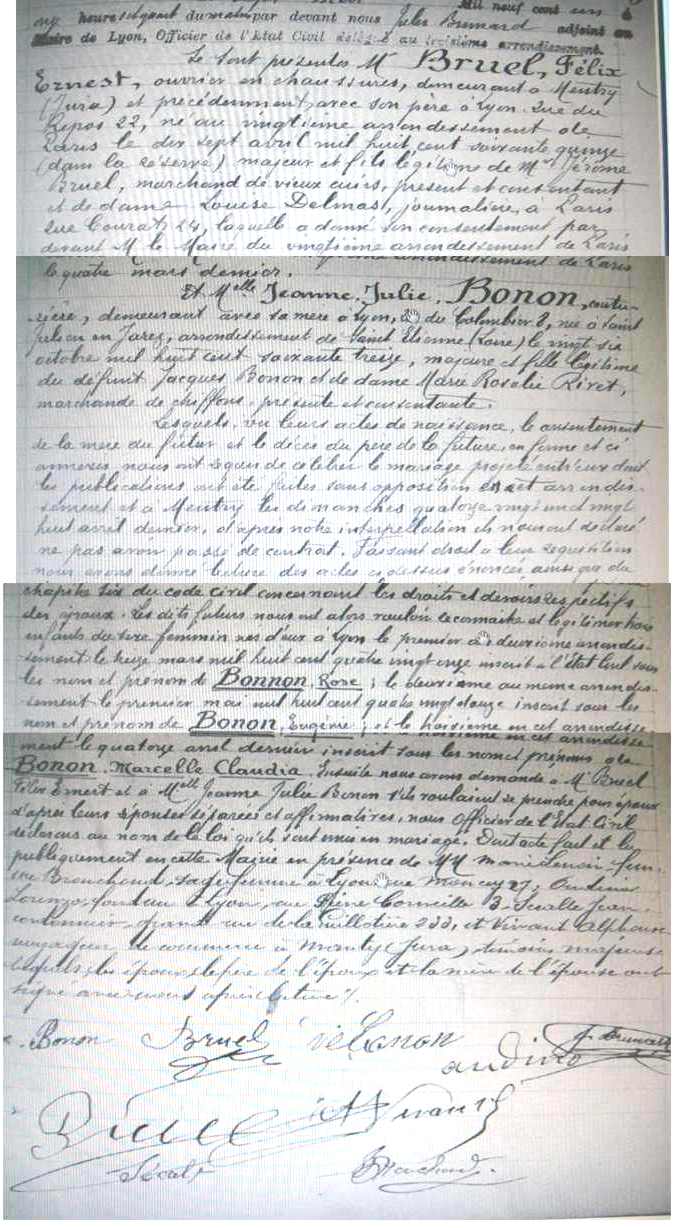 Mil neuf cent un à
onz heures du matin par devant nous Jules Brunard adjoint au
Maire de Lyon, Officier de l'Etat Civil délégué au troisième arrondissement.
Se sont présentés M Bruel, Félix
Ernest, ouvrier en chaussures, demeurant à Mentry
(Jura) et précédemment avec son père à Lyon, Rue du
Repos 22, né au vingtième arrondissement de
Paris le dix sept avril mil huit cent soixante quinze
(dans la réserve) majeur et fils légitime de Mr Jérôme
Bruel, marchand de vieux cuirs, présent et consentant
et de dame Louise Delmas, journalière, à Paris
rue Courat 24, laquelle a donné son consentement par
devant M le Maire du vingtième arrondissement de Paris
le quatre mars dernier.
Et Melle Jeanne, Julie, Bonon, coutu-
rière, demeurant avec sa mère à Lyon, du Colombier 8, née à Saint
Julien en Jarez, arrondissement de Saint Etienne (Loire) le vingt six
octobre mil huit cent soixante treize, majeure et fille légitime
du défunt Jacques Bonon et de dame Marie Rosalie Rivet,
marchande de chiffons, présente et consentante.
Lesquels, vu leurs actes de naissance, le consentement
de la mère du futur et le décès du père de la future, en forme et ci
annexés nous ont requis de célébrer le mariage projeté entr'eux dont
les publications ont été faites sans opposition en cet arrondis-
sement et à Mentry les dimanches quatorze vingt un et vingt
huit avril dernier, d'après notre interpellation ils nous ont déclaré
ne pas avoir passé de contrat. Faisant droit à leur réquisition
nous avons donné lecture des actes ci dessus énoncés ainsi que du
chapitre six du code civil concernant les droits et devoirs respectifs
des époux. Les dits futurs nous ont alors voulu reconnaître et légitimer trois
enfants du sexe féminin nés d'eux à Lyon le premier deuxième arrondis-
sement le seize mars mil huit cent quatre vingt onze inscrit à l'état civil sous
les nom et prénom de Bonnon, Rose ; le deuxième au même arrondis-
sement le premier mai mil huit cent quatre vingt douze inscrit sous les
nom et prénom de Bonon, Eugénie ; et le troisième en cet arrondisse-
ment le quatorze avril dernier inscrit sous les nom et prénoms de
Bonon, Marcelle Claudia. Ensuite nous avons demandé à Mr Bruel
Félix Ernest et à Melle Jeanne Julie Bonon s'ils voulaient se prendre pour époux
d'après leurs réponses séparées et affirmatives, nous Officier de l'Etat Civil
déclarons au nom de la loi qu'ils sont unis en mariage. Dont acte fait et lu
publiquement en cette Mairie en présence de MM Marie Lenoir fem-
me Brouchoud, sage femme à Lyon rue Moncey 27,
Lorenzo, à Lyon, rue Pierre Corneille Séralle Jean,
cantonnier, grande rue de la Guillotière 233, et Vivant Alphonse
voyageur de commerce à Mentry (Jura), témoins majeurs
lesquels, les époux, le père de l'époux et la mère de l'épouse ont
signé avec nous après lecture /.
Bonon Bruel Ve Bonon J. Brunard
Audino
Bruel A Vivant
Séralle Brouchoud